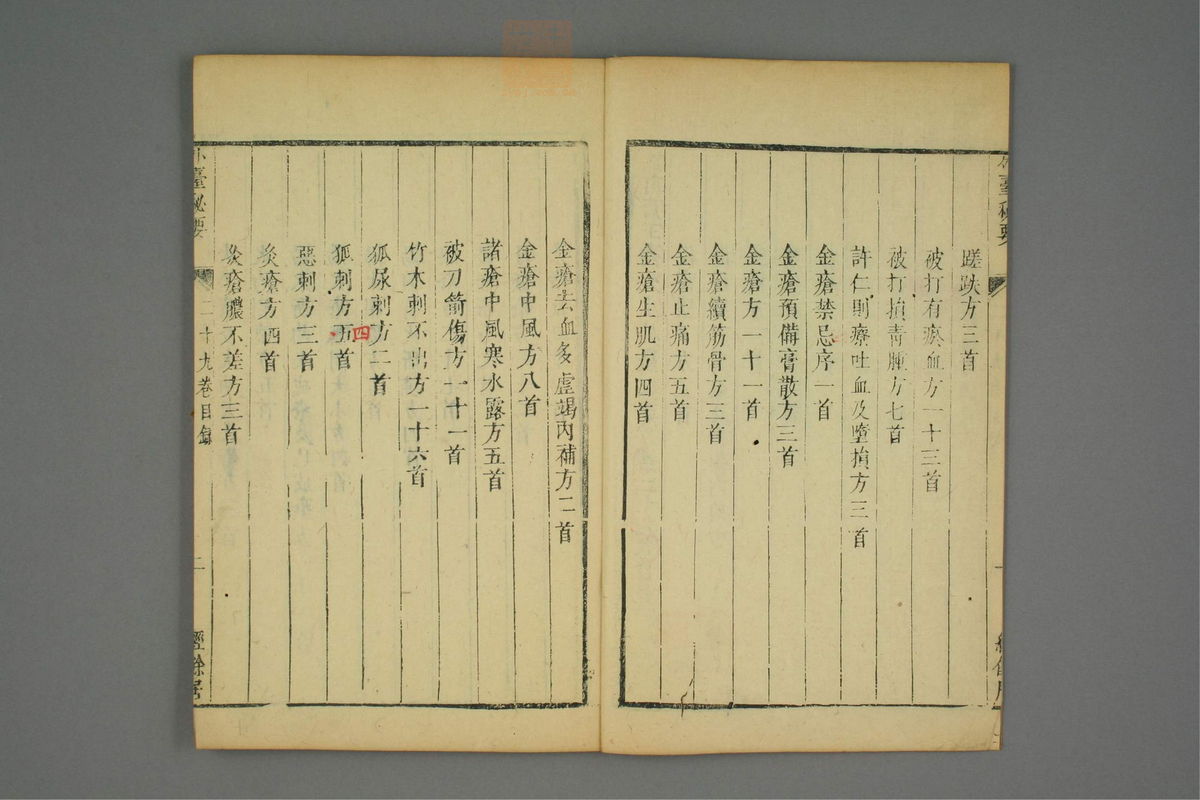 臺秘要
蹉跌方三首
被打有瘀血方一十三首
被打損青腫方七首
許仁則療吐血及墮損方三首
金瘡禁忌序一首
金瘡預備膏散方三首
金瘡方一十一首
金瘡續筋骨方三首
金瘡止痛方五首
金瘡生肌方四首
金瘡去血多虛竭內補方二首
金瘡中風方八首
諸瘡中風寒水露方五首
被刀箭傷方一十一首
竹木刺不出方一十六首
狐尿刺方二首
狐刺方五首
四
惡刺方三首
灸瘡方四首
灸瘡膿不差方三首
外臺秘要
二十九卷目錄
二
經餘居